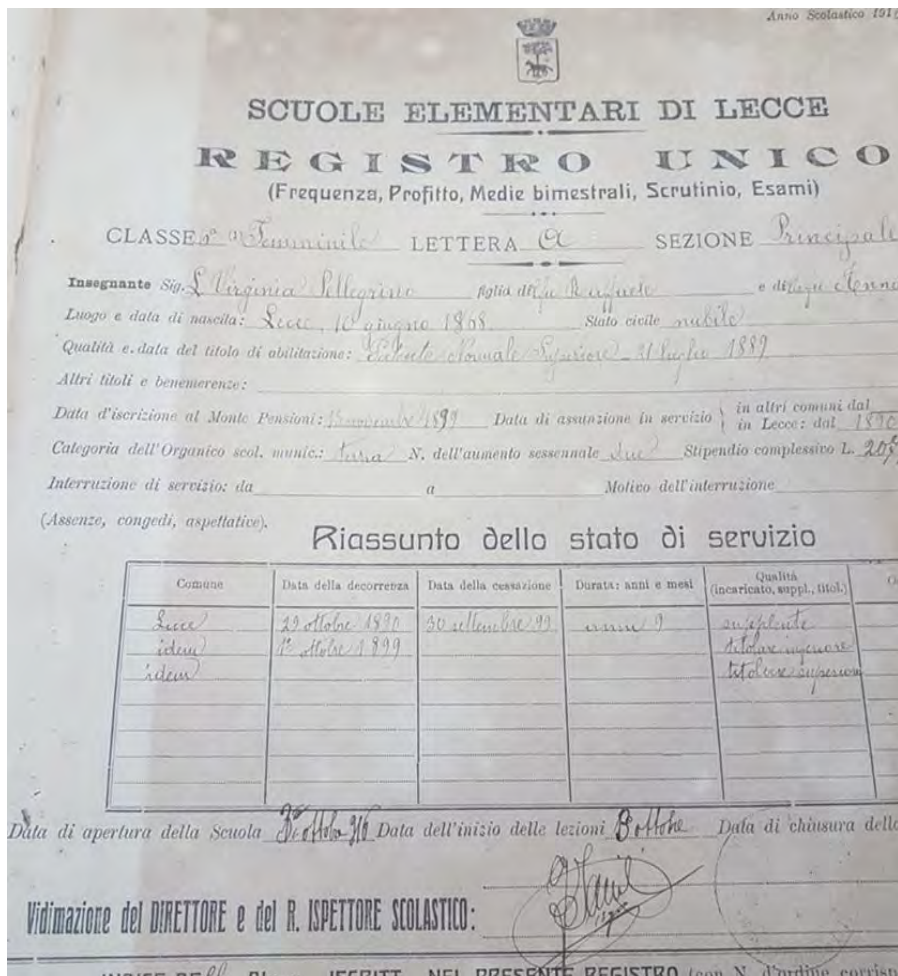 Anno Scolastico 191
SCUOLE ELEMENTARI DI LECCE
REGISTRO UNICO
(Frequenza, Profitto, Medie bimestrali, Scrutinio, Esami)
CLASSE Femminile LETTERA A SEZIONE Principale
Insegnante Sig. Virginia Pellegrino figlia di fu Raffaele e di
Luogo e data di nascita: Lecce, 10 giugno 1868 Stato civile nubile
Qualità e data del titolo di abilitazione: Patente Normale Superiore - 21 luglio 1889
Altri titoli e benemerenze:
Data d'iscrizione al Monte Pensioni: 1899 Data di assunzione in servizio { in altri comuni dal
in Lecce: dal 1890
Categoria dell'Organico scol. munic.: Terza N. dell'aumento sessennale due Stipendio complessivo L.
Interruzione di servizio: da a Motivo dell'interruzione
(Assenze, congedi, aspettative).
Riassunto dello stato di servizio
Comune Data della decorrenza Data della cessazione Durata: anni e mesi Qualità (incaricato, suppl., titol.)
Lecce 29 ottobre 1890 30 settembre 99 anni 9 supplente
idem 1° ottobre 1899 titolare inferiore
idem titolare superiore
Data di apertura della Scuola ottobre 916 Data dell'inizio delle lezioni ottobre Data di chiusura
Vidimazione del DIRETTORE e del R. ISPETTORE SCOLASTICO:
NEL PRESENTE REGISTRO